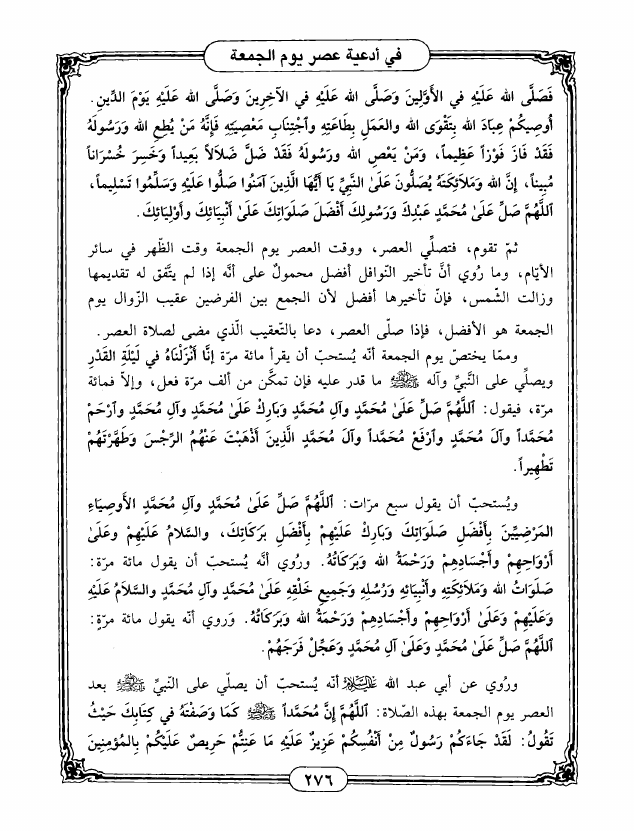 في أدعية عصر يوم الجمعة
فَصَلَّى الله عَلَيْهِ في الأَوَّلِينَ وَصَلَّى الله عَلَيْهِ في الآخِرِينَ وَصَلَّى الله عَلَيْهِ يَوْمَ الدِّينِ.
أُوصِيكُمْ عِبَادَ الله بِتَقْوَى الله والعَمَلِ بِطَاعَتِهِ وٱجْتِنَابِ مَعْصِيَتِهِ فَإِنَّهُ مَنْ يُطِعِ الله وَرَسُولَهُ
فَقَدْ فَازَ فَوْزاً عَظِيماً، وَمَنْ يَعْصِ الله ورسُولَهُ فَقَدْ ضَلَّ ضَلَالاً بَعِيداً وَخَسِرَ خُسْرَاناً
مُبِيناً، إِنَّ الله وَمَلَائِكَتَهُ يُصَلُّونَ عَلَىٰ النَّبِيِّ يَا أَيُّهَا الَّذِينَ آمَنُوا صَلُّوا عَلَيْهِ وَسَلِّمُوا تَسْلِيماً،
ٱللَّهُمَّ صَلِّ عَلَىٰ مُحَمَّدٍ عَبْدِكَ وَرَسُولِكَ أَفْضَلَ صَلَوَاتِكَ عَلَىٰ أَنْبِيَائِكَ وأَوْلِيَائِكَ.
ثمّ تقوم، فتصلِّي العصر، ووقت العصر يوم الجمعة وقت الظّهر في سائر
الأيّام، وما رُوي أنَّ تأخير النّوافل أفضل محمولٌ على أنَّه إذا لم يتَّفق له تقديمها
وزالت الشّمس، فإنّ تأخيرها أفضل لأن الجمع بين الفرضين عقيب الزّوال يوم
الجمعة هو الأفضل، فإذا صلّى العصر، دعا بالتّعقيب الّذي مضى لصلاة العصر.
وممّا يختصّ يوم الجمعة أنّه يُستحبّ أن يقرأ مائة مرّة إِنَّا أَنْزَلْنَاهُ في لَيْلَةِ القَدْرِ
ويصلّي على النَّبيِّ وآله ﷺ ما قدر عليه فإن تمكَّن من ألف مرّة فعل، وإلاّ فمائة
مرّة، فيقول: ٱللَّهُمَّ صَلِّ عَلَىٰ مُحَمَّدٍ وآلِ مُحَمَّدٍ وَبَارِكْ عَلَىٰ مُحَمَّدٍ وَآلِ مُحَمَّدٍ وٱرْحَمْ
مُحَمَّداً وآلَ مُحَمَّدٍ وٱرْفَعْ مُحَمَّداً وآلَ مُحَمَّدٍ الَّذِينَ أَذْهَبْتَ عَنْهُمُ الرِّجْسَ وَطَهَّرْتَهُمْ
تَطْهِيراً.
ويُستحبّ أن يقول سبع مرّات: ٱللَّهُمَّ صَلِّ عَلَىٰ مُحَمَّدٍ وآلِ مُحَمَّدٍ الأَوْصِيَاءِ
المَرْضِيِّينَ بِأَفْضَلِ صَلَوَاتِكَ وَبَارِكْ عَلَيْهِمْ بِأَفْضَلِ بَرَكَاتِكَ، والسَّلامُ عَلَيْهِمْ وعَلَىٰ
أَرْوَاحِهِمْ وأَجْسَادِهِمْ وَرَحْمَةُ الله وَبَرَكَاتُهُ. ورُوي أنَّه يُستحبّ أن يقول مائة مرّة:
صَلَوَاتُ الله وَمَلَائِكَتِهِ وأَنْبِيَائِهِ وَرُسُلِهِ وَجَمِيعِ خَلْقِهِ عَلَىٰ مُحَمَّدٍ وآلِ مُحَمَّدٍ والسَّلَامُ عَلَيْهِ
وَعَلَيْهِمْ وَعَلَىٰ أَرْوَاحِهِمْ وأَجْسَادِهِمْ وَرَحْمَةُ الله وَبَرَكَاتُهُ. وَروي أنه يقول مائة مرّةٍ:
ٱللَّهُمَّ صَلِّ عَلَىٰ مُحَمَّدٍ وَعَلَىٰ آلِ مُحَمَّدٍ وَعَجِّلْ فَرَجَهُمْ.
ورُوي عن أبي عبد الله عليه السلام أنّه يُستحبّ أن يصلّي على النّبيّ ﷺ بعد
العصر يوم الجمعة بهذه الصّلاة: ٱللَّهُمَّ إِنَّ مُحَمَّداً ﷺ كَمَا وَصَفْتَهُ في كِتَابِكَ حَيْثُ
تَقُولُ: لَقَدْ جَاءَكُمْ رَسُولٌ مِنْ أَنْفُسِكُمْ عَزِيزٌ عَلَيْهِ مَا عَنِتُّمْ حَرِيصٌ عَلَيْكُمْ بِالمُؤْمِنِينَ
٢٧٦